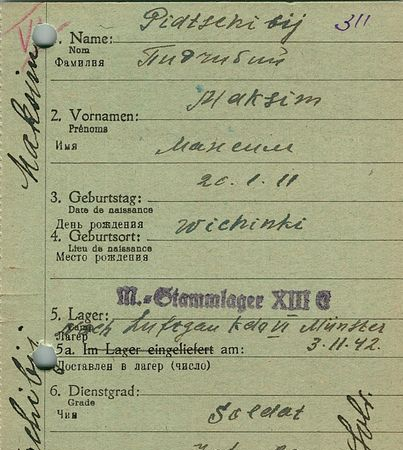 Pidtschibij 311
1. Name:
Nom
Фамилия Пидчибий
Maksim
2. Vornamen:
Prénoms
Имя Максим
20.1.11
3. Geburtstag:
Date de naissance
День рождения Wichinki
4. Geburtsort:
Lieu de naissance
Место рождения
M.-Stammlager XIII C
5. Lager:
Camp
Лагерь nach Luftgau Kdo VI Münster
5a. Im Lager eingeliefert am: 3.11.42.
Доставлен в лагерь (число)
6. Dienstgrad:
Grade
Чин Soldat
Maksim